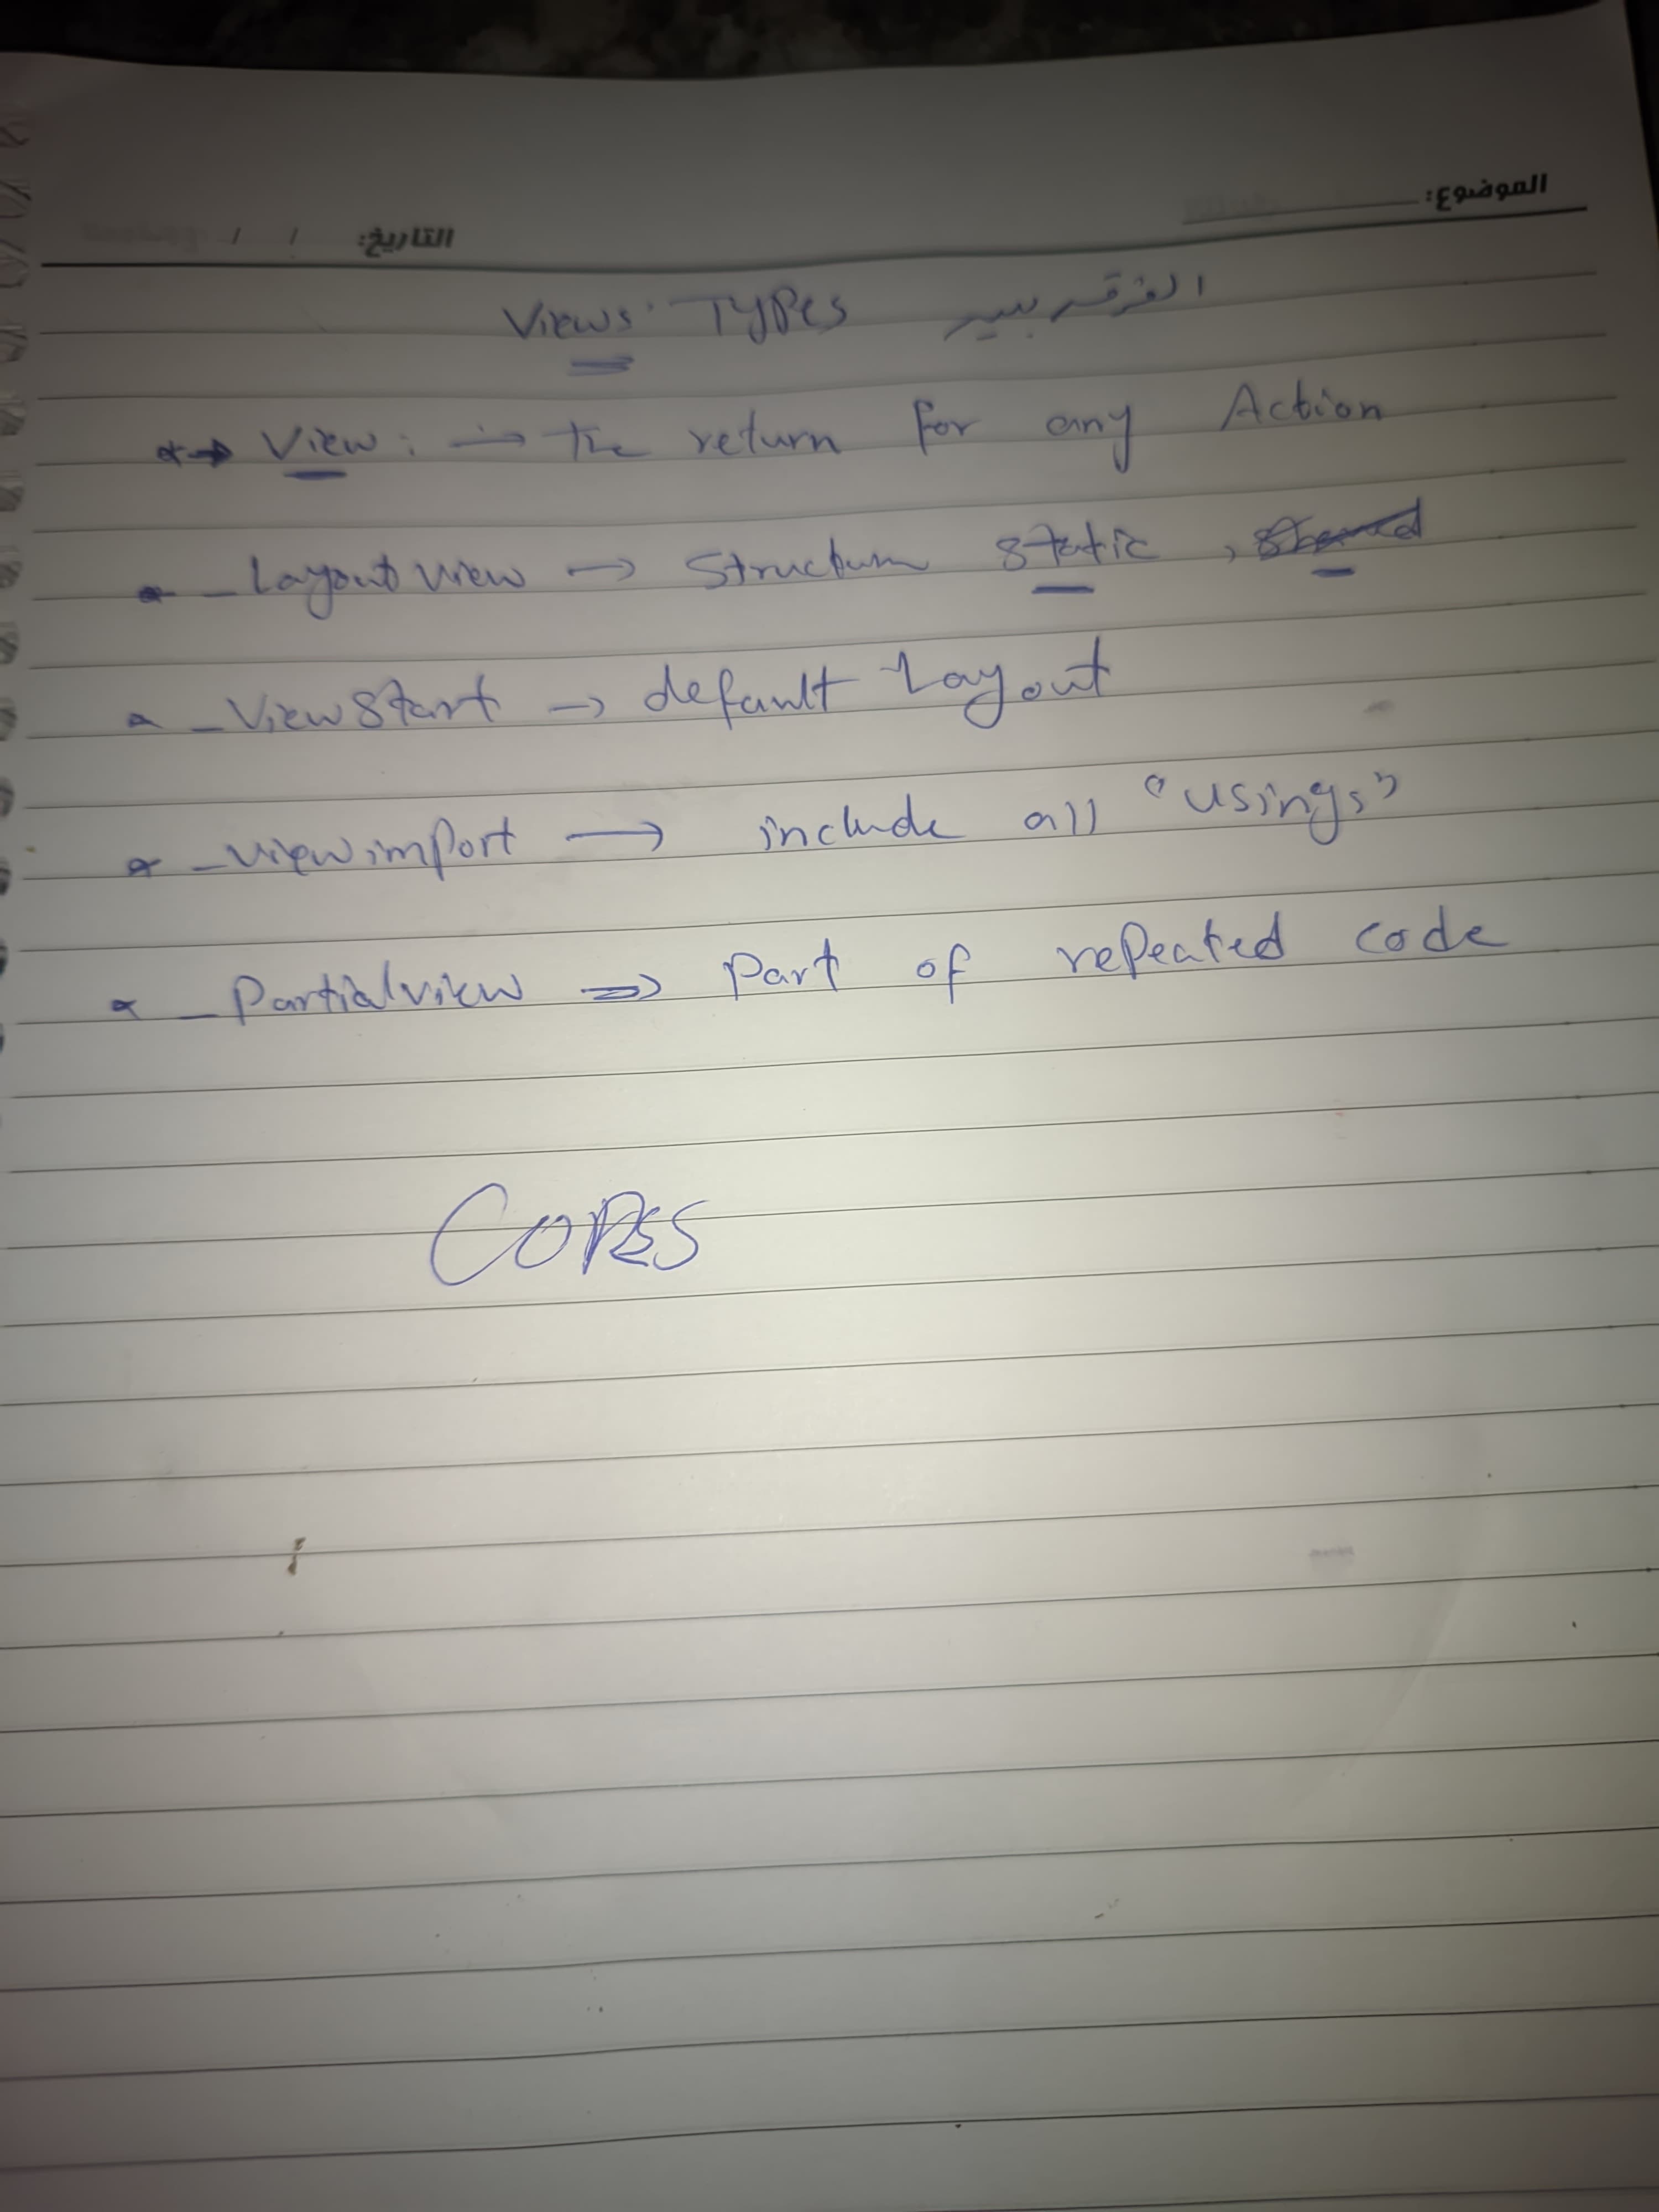 الموضوع:
التاريخ: / /
Views Types الفرق بين
* → View: → The return for any Action
* _Layout view → Structure static ,
* _ViewStart → default Layout
* _viewimport → include all "usings"
* _Partialview ⇒ Part of repeated code